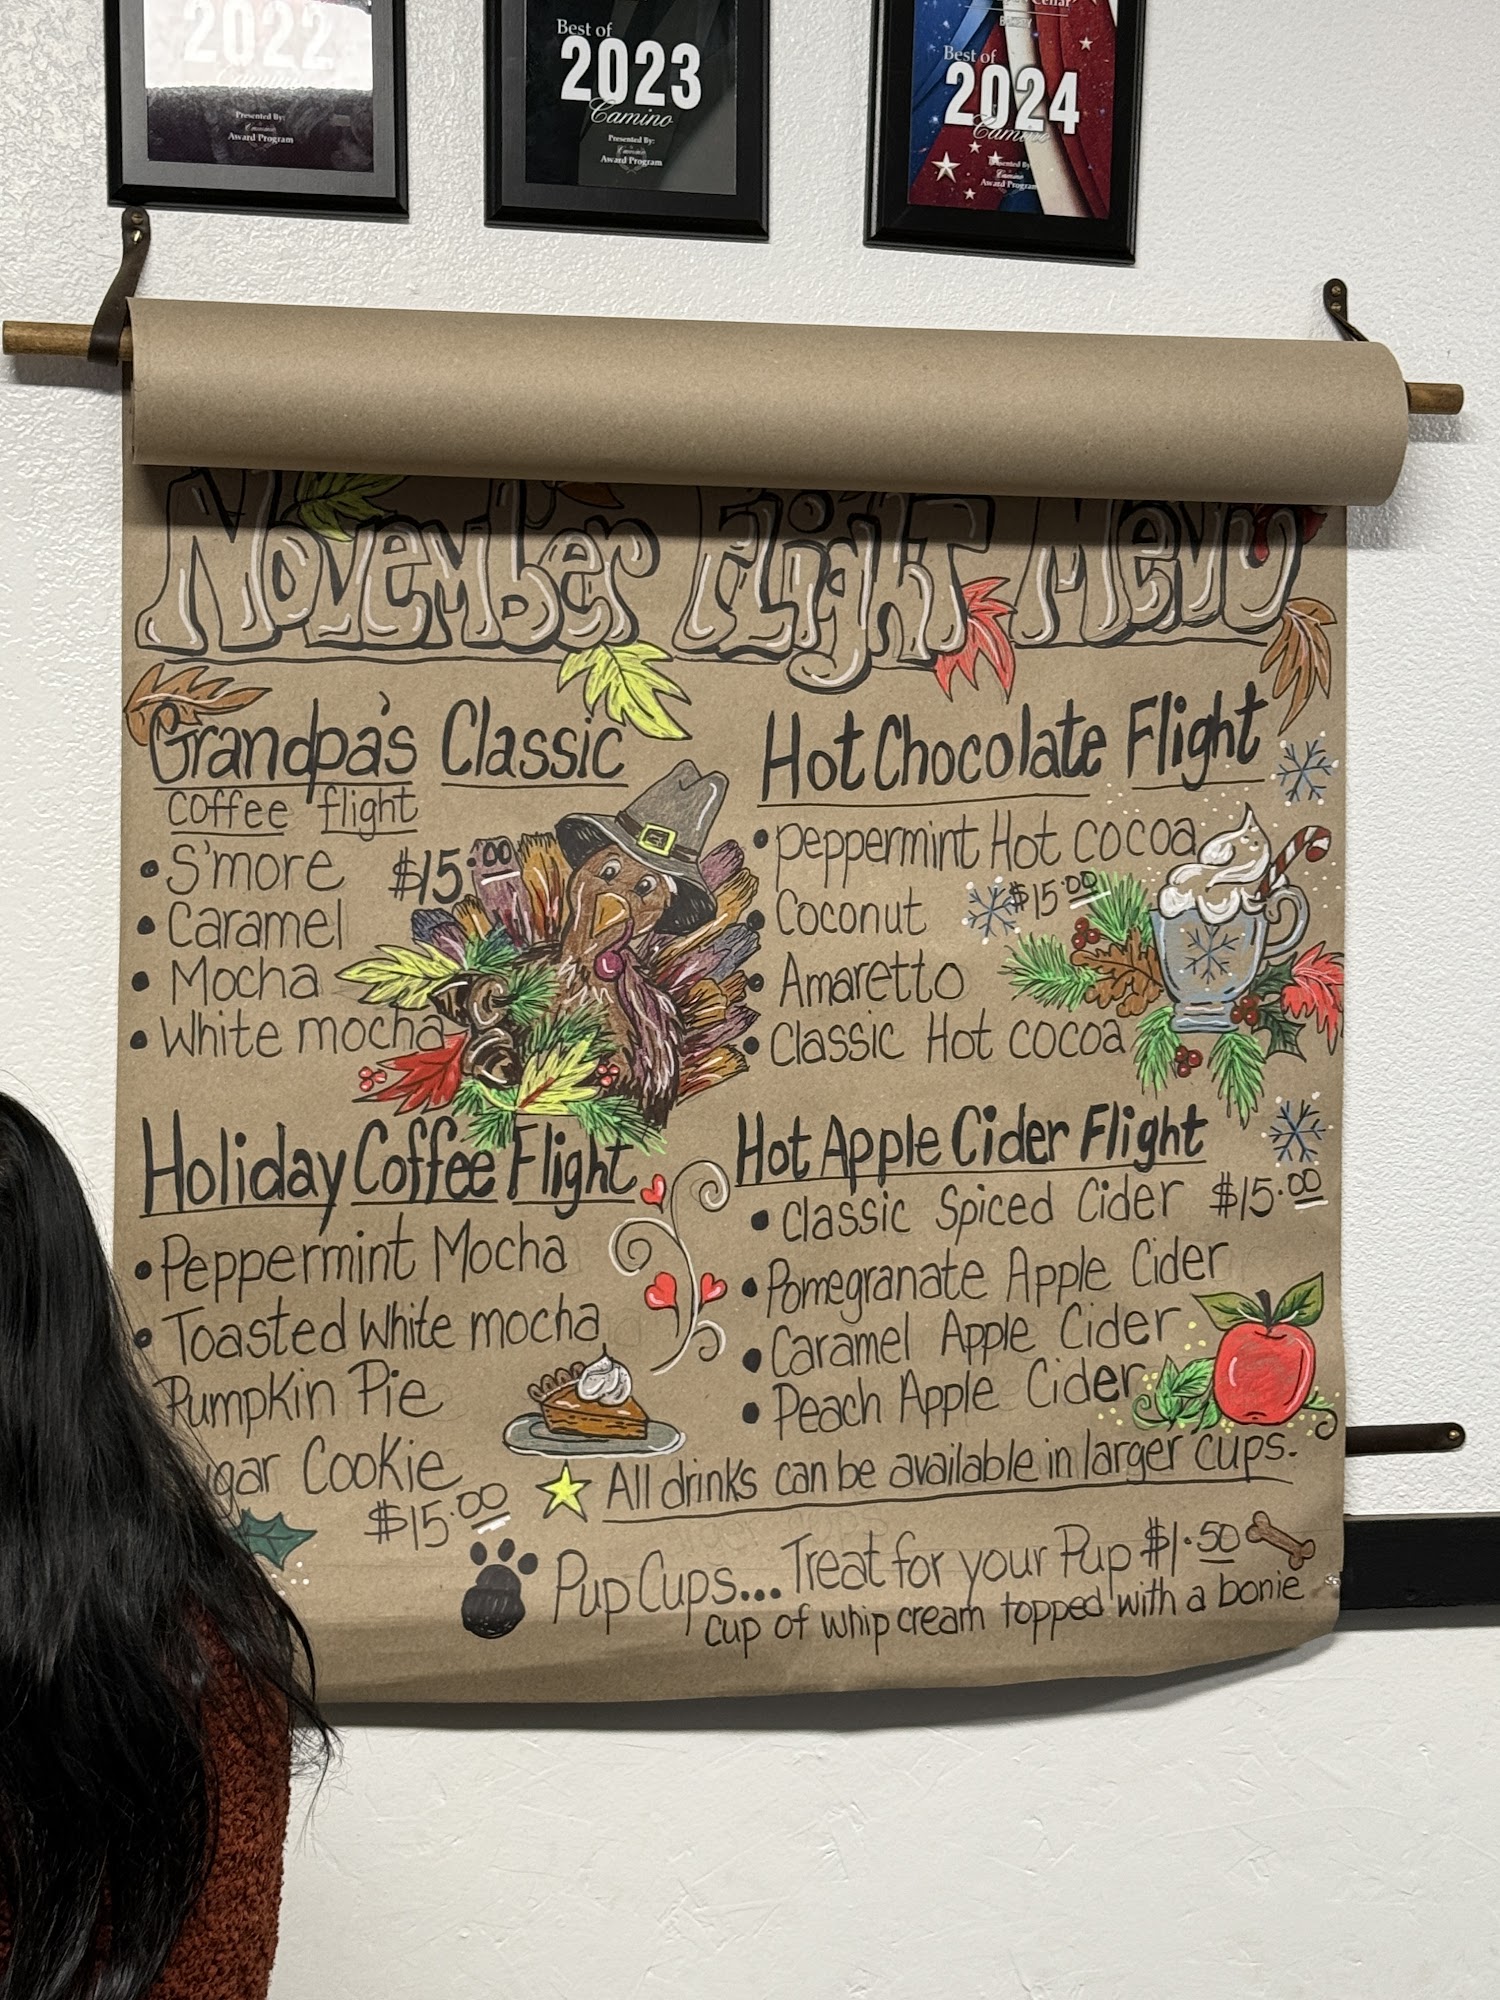 2022
Camino
Presented By:
Award Program
Best of
2023
Camino
Presented By:
Camino
Award Program
Best of
2024
Camino
Presented By:
Camino
Award Program
November Flight Menu
Grandpa's Classic
coffee flight
• S'more $15.00
• Caramel
• Mocha
• White mocha
Hot Chocolate Flight
• Peppermint Hot cocoa
• Coconut $15.00
• Amaretto
• Classic Hot cocoa
Holiday Coffee Flight
• Peppermint Mocha
• Toasted White mocha
Pumpkin Pie
gar Cookie
$15.00
Hot Apple Cider Flight
• Classic Spiced Cider $15.00
• Pomegranate Apple Cider
• Caramel Apple Cider
• Peach Apple Cider
All drinks can be available in larger cups.
Pup Cups... Treat for your Pup $1.50
cup of whip cream topped with a bonie